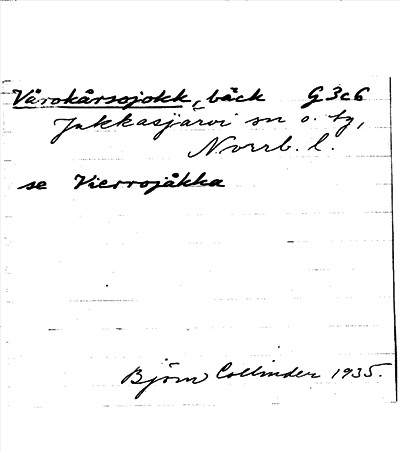 Vårokårsojokk, bäck G3c6
Jukkasjärvi sn o. tg,
Norrb. l.
se Vierrojåkka
Björn Collinder 1935.